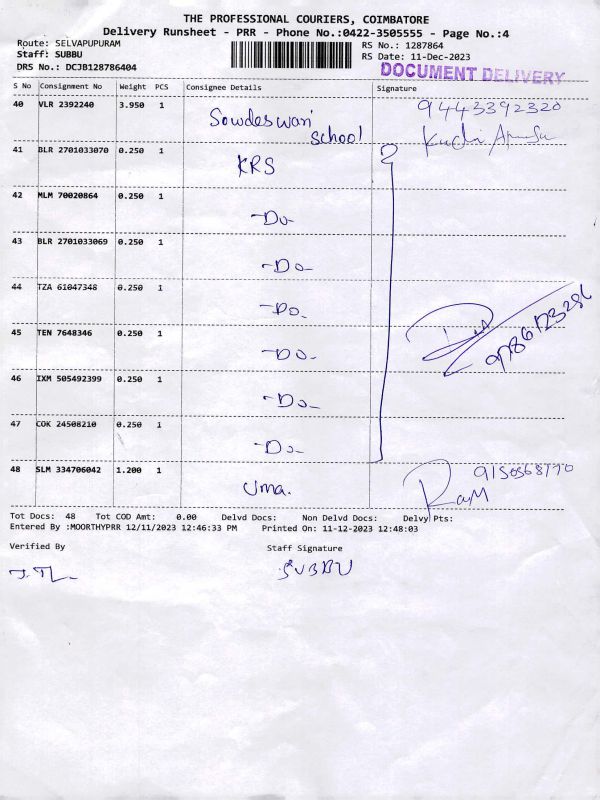 THE PROFESSIONAL COURIERS, COIMBATORE
Delivery Runsheet - PRR - Phone No.:0422-3505555 - Page No.:4
Route: SELVAPUPURAM
RS No.: 1287864
Staff: SUBBU
RS Date: 11-Dec-2023
DRS No.: DCJB128786404
DOCUMENT DELIVERY
S No Consignment No Weight PCS Consignee Details Signature
40 VLR 2392240 3.950 1 Sowdeswari School 9443392320
41 BLR 2701033070 0.250 1 KRS
42 MLM 70020864 0.250 1 -Do-
43 BLR 2701033069 0.250 1 -Do-
44 TZA 61047348 0.250 1 -Do.
45 TEN 7648346 0.250 1 -Do-
46 IXM 505492399 0.250 1 -Do-
47 COK 24508210 0.250 1 -Do-
48 SLM 334706042 1.200 1 Uma. Ram
Tot Docs: 48 Tot COD Amt: 0.00 Delvd Docs: Non Delvd Docs: Delvy Pts:
Entered By :MOORTHYPRR 12/11/2023 12:46:33 PM Printed On: 11-12-2023 12:48:03
Verified By Staff Signature
SUBBU